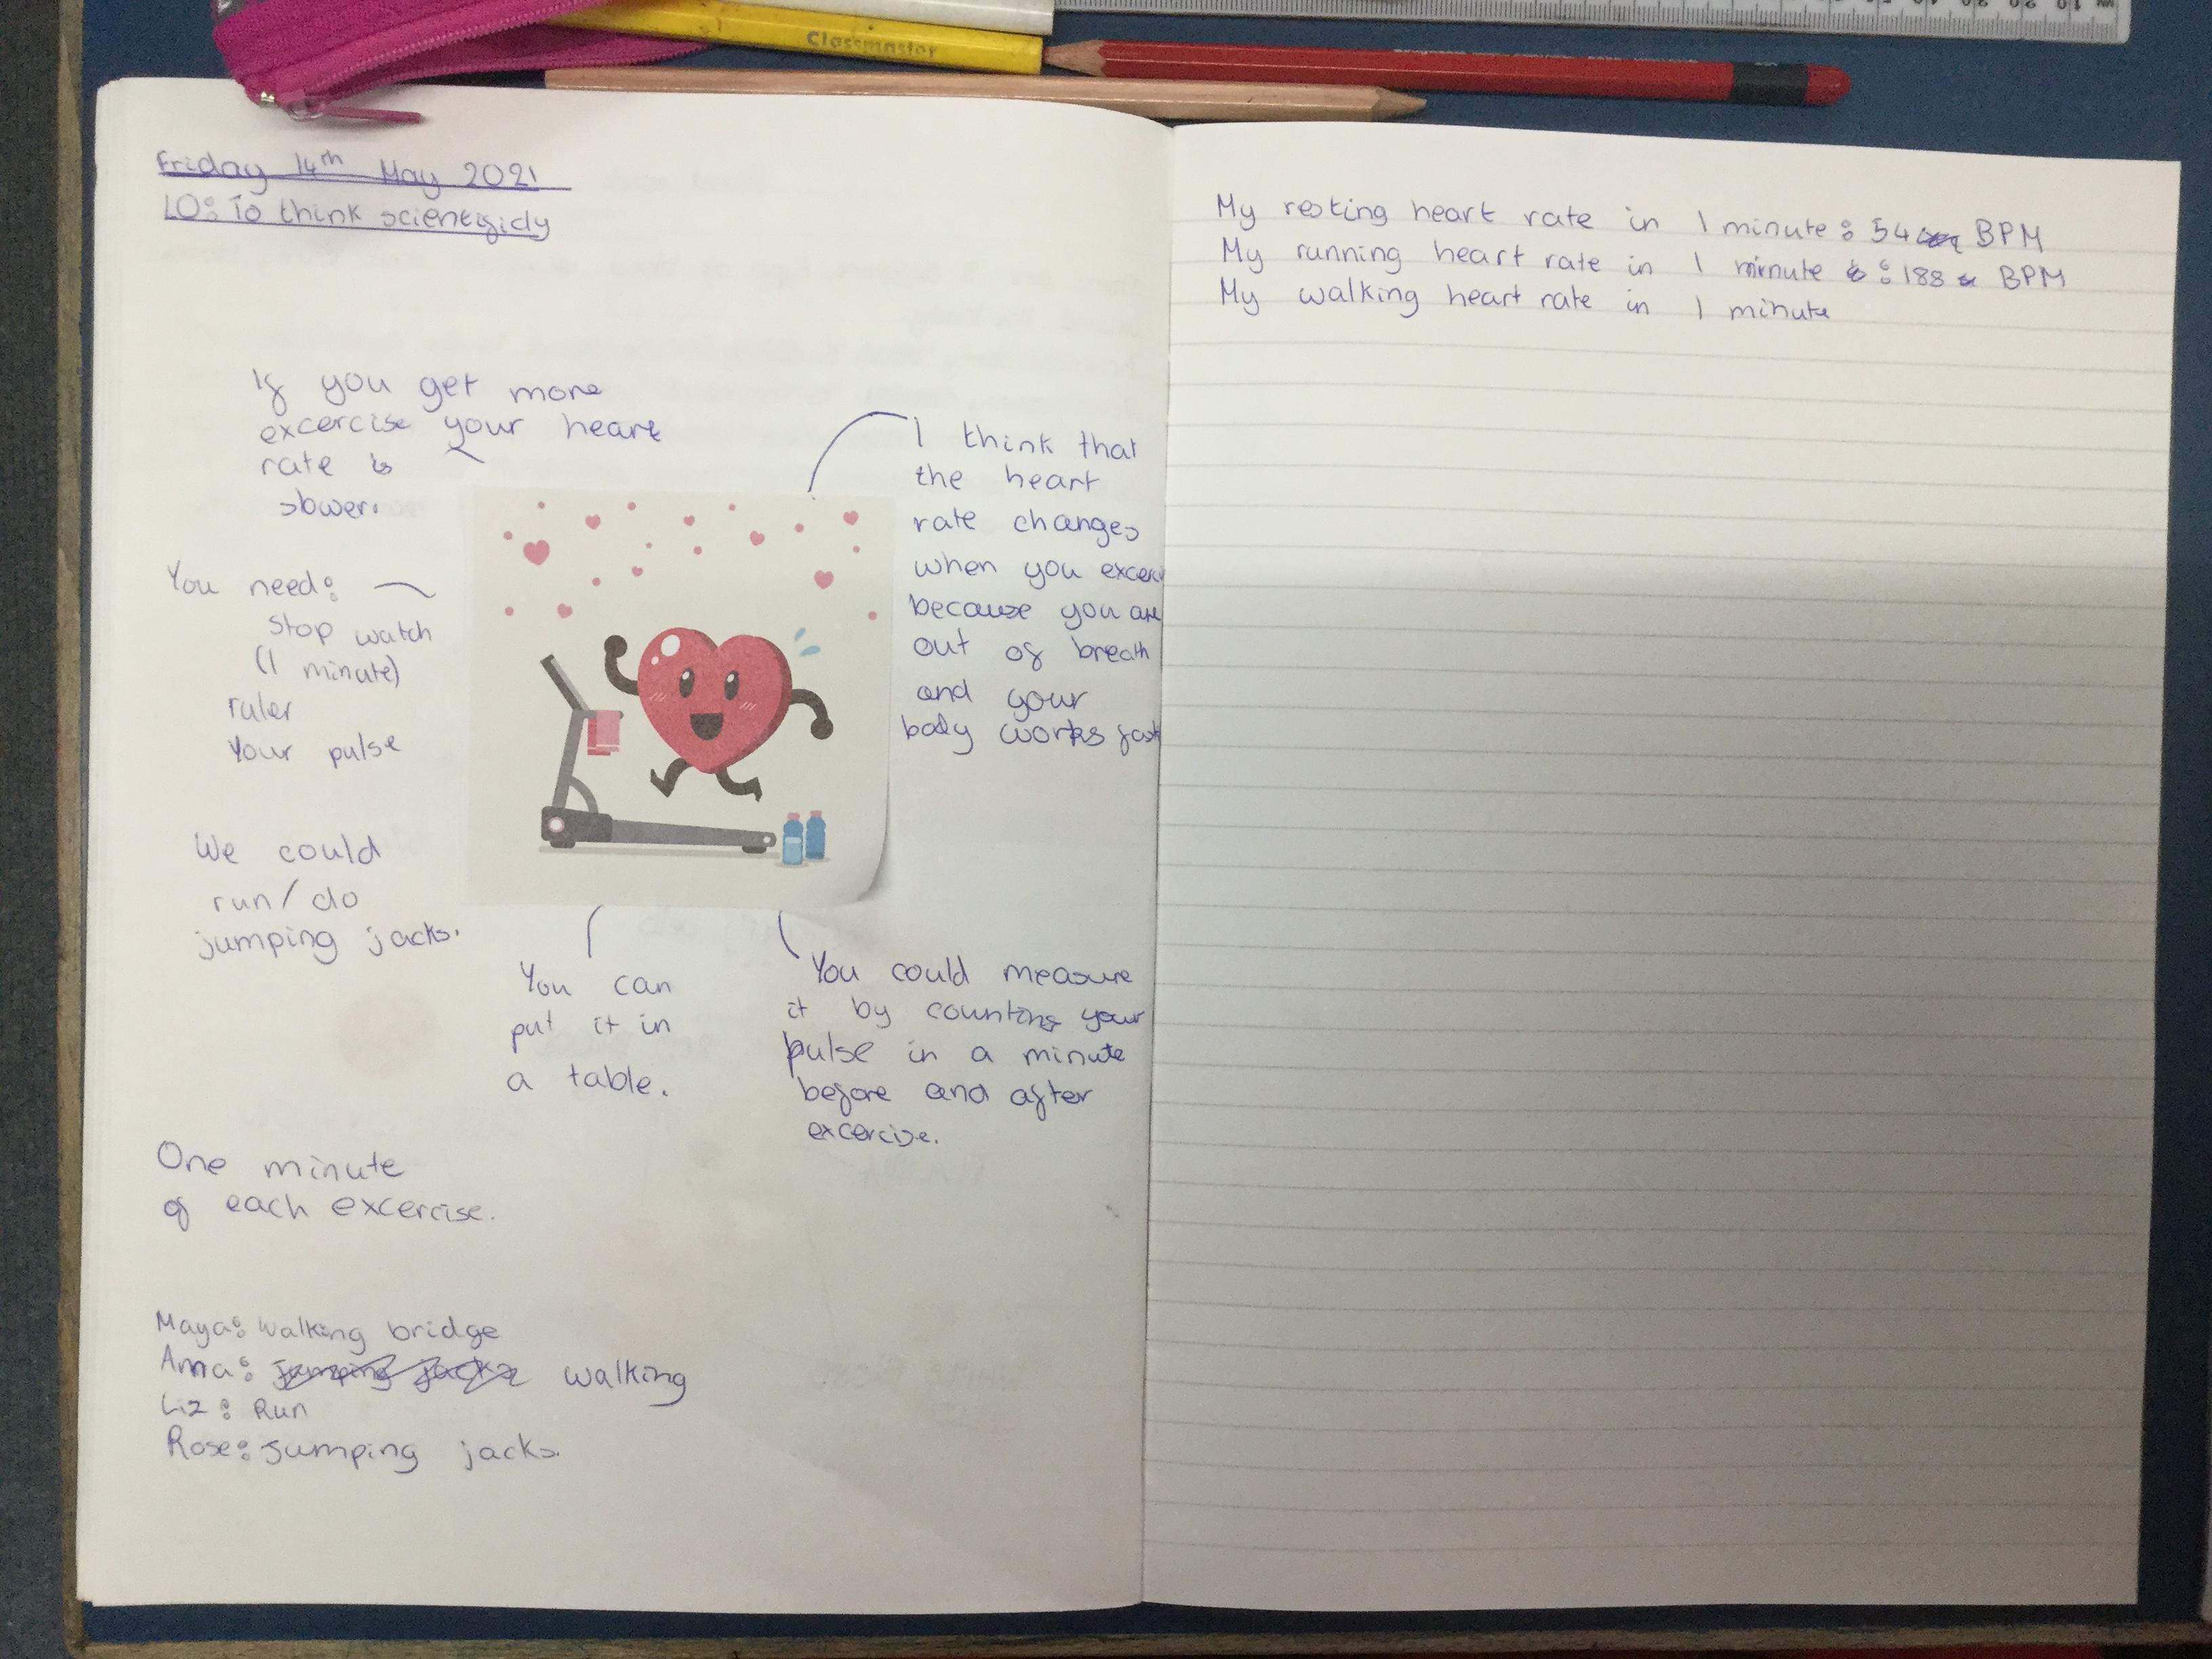 Classmaster
Friday 14th May 2021
LO: To think scientificly
If you get more
excercise your heart
rate is
slower.
I think that
the heart
rate changes
when you excerci
because you are
out of breath
and your
body works fast
You need:
Stop watch
(1 minute)
ruler
Your pulse
We could
run/do
jumping jacks.
You can
put it in
a table.
You could measure
it by counting your
pulse in a minute
before and after
excercise.
One minute
of each excercise.
Maya: Walking bridge
Anna: jumping jacks walking
Liz: Run
Rose: Jumping jacks.
My resting heart rate in 1 minute: 54 BPM
My running heart rate in 1 minute : 188 BPM
My walking heart rate in 1 minute